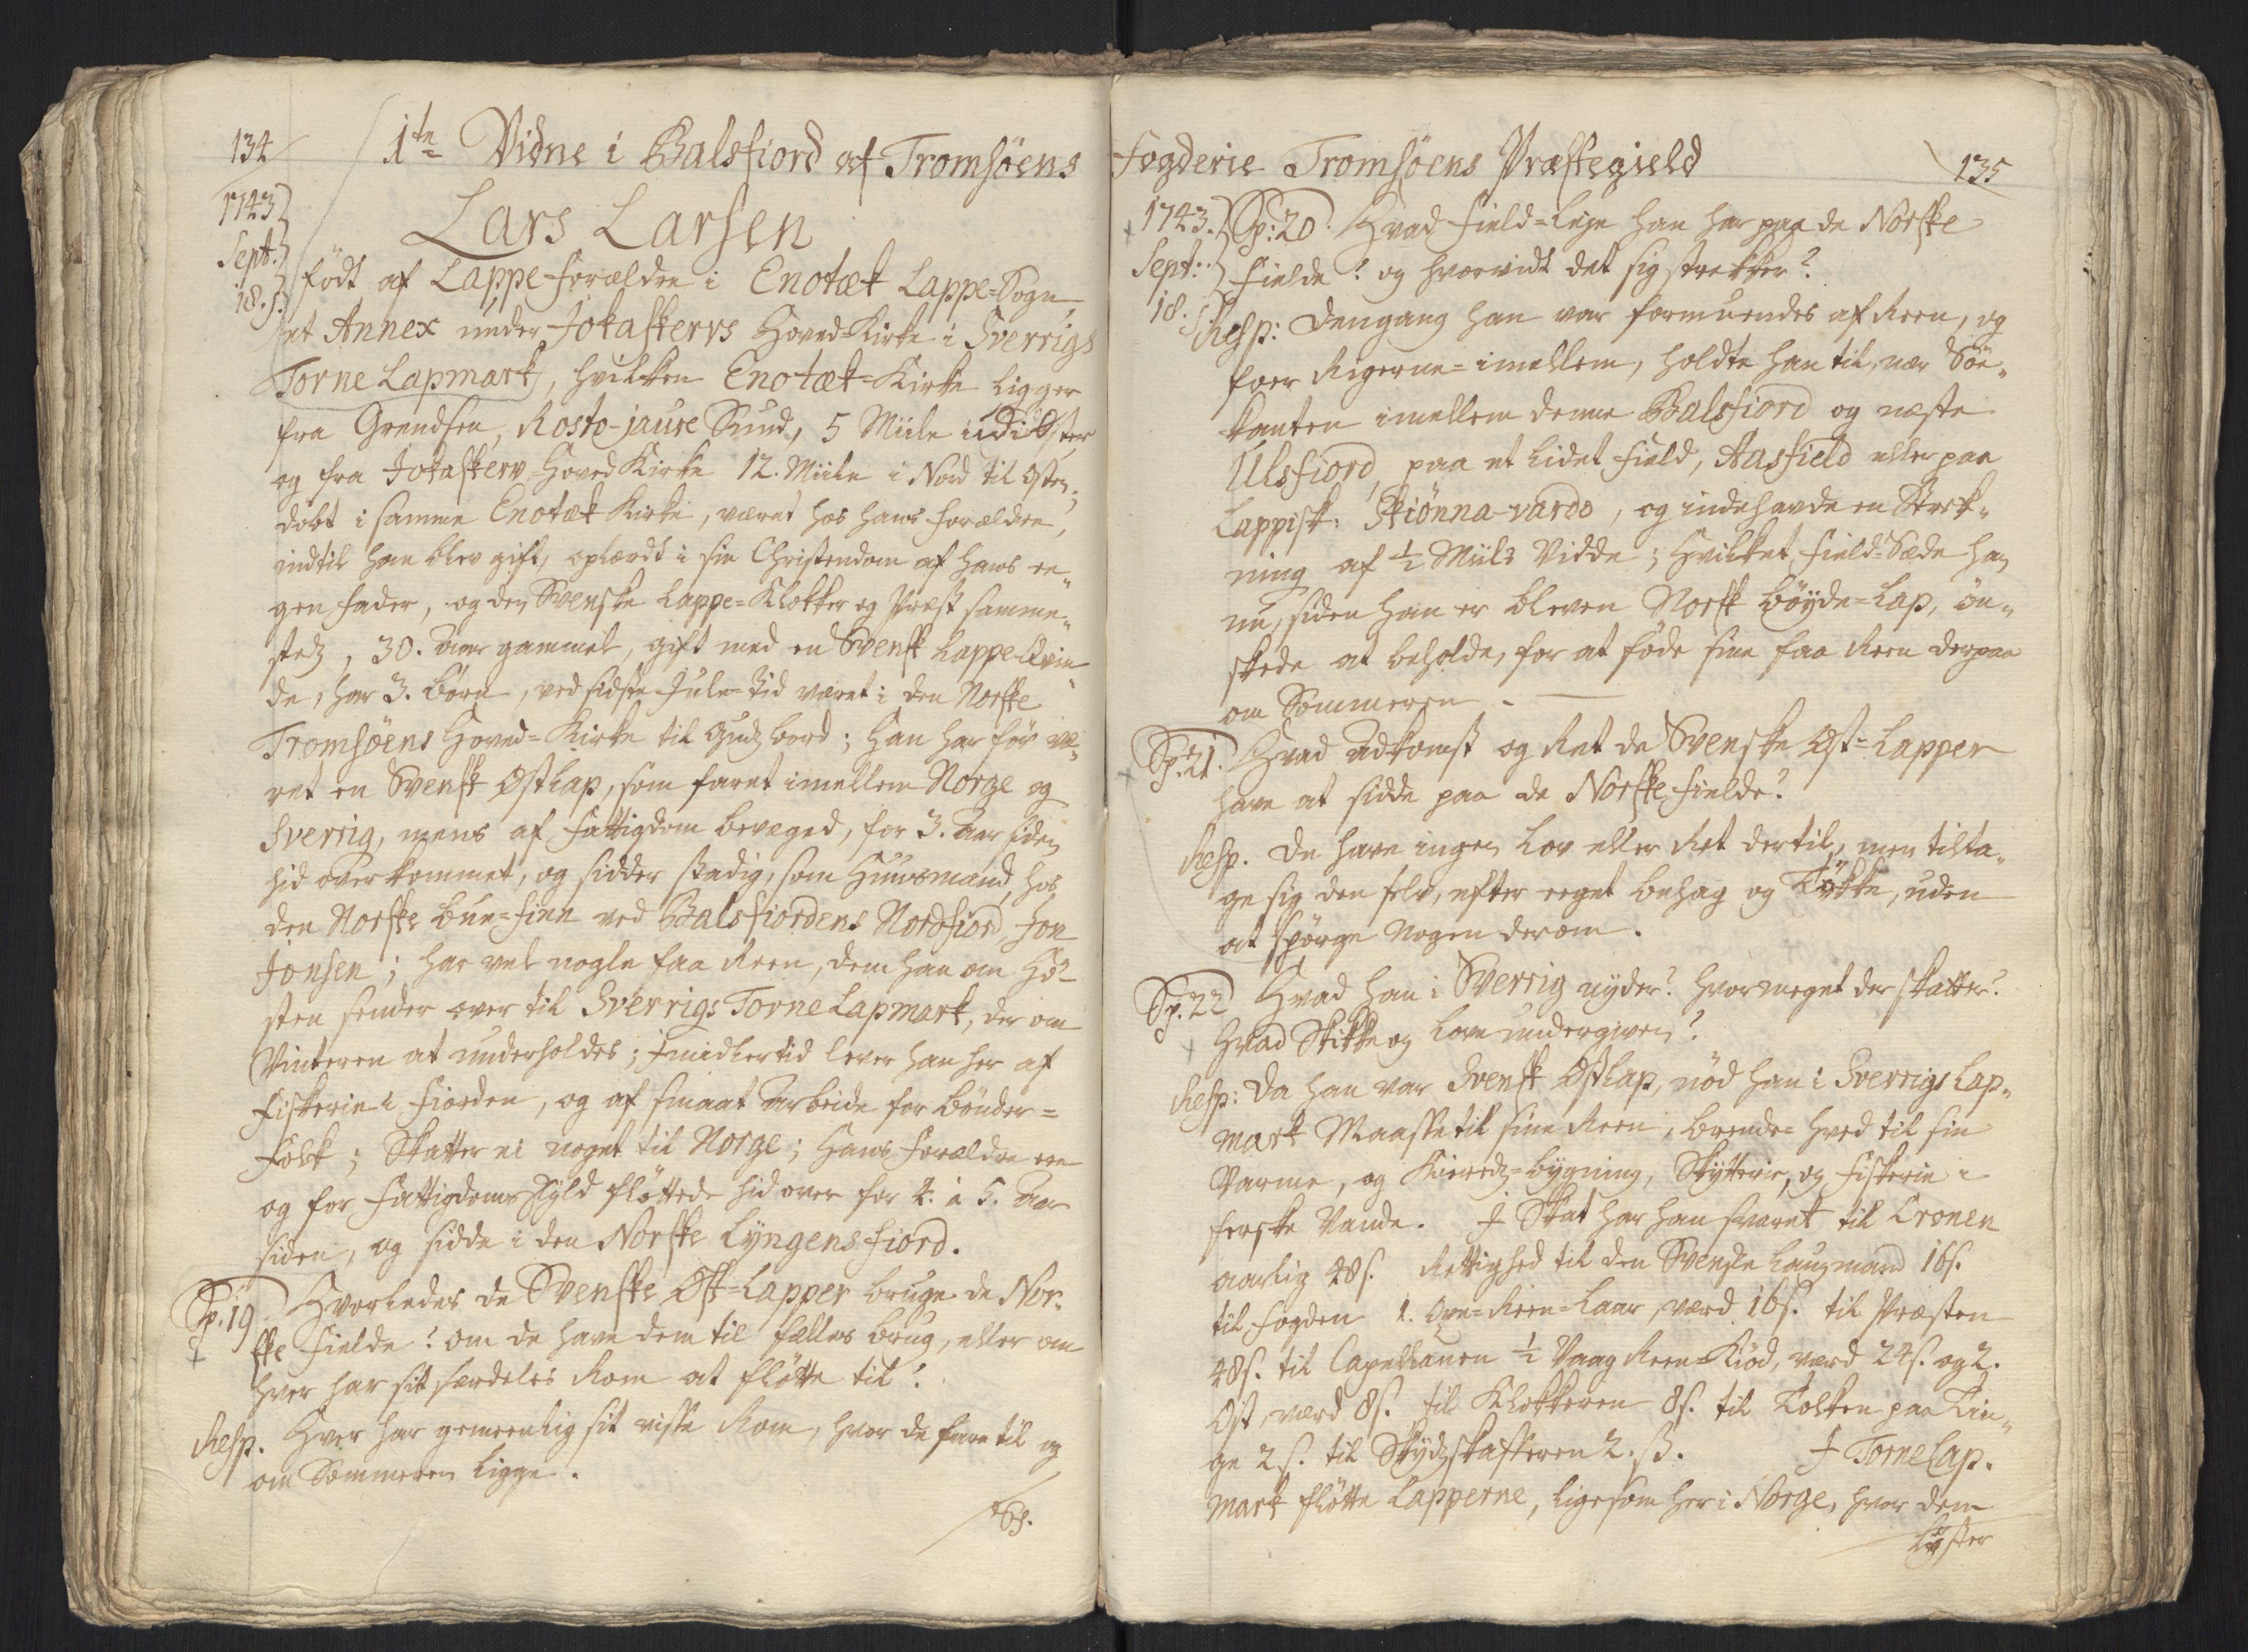 134
1te Vidne i Balsfiord af Tromsöens
1743
Sept.
18.
Lars Larsen
födt af Lappe-forældre i Enotæk Lappe-Sogn,
et Annex under Jokaskervs Hoved-Kirke i Sverrigs
Torne Lapmark, hvilken Enotæk-Kirke ligger
fra Grendsen, Rosto-jaure Sund, 5 Miile i Öster
og fra Jokaskerv Hoved Kirke 12. Miile i Nord til Osten;
döbt i samme Enotæk Kirke, været hos hans forældre,
indtil han blev gift, oplærdt i sin Christendom af hans ee-
gen fader, og den Svenske Lappe-Klokker og Præst samme-
stedz, 30. Aar gammel, gift med en Svensk Lappe Qvin-
de, har 3. börn, ved sidste Jule-Tid været i den Norske
Tromsöens Hoved-Kirke til Gudz bord; Han har för væ-
ret en Svensk Östlap, som faret imellem Norge og
Sverrig, mens af Fattigdom bevæged, for 3. Aar siden
hid over kommet, og sidder stadig, som Huusmand, hos
den Norske bue-finn ved Balsfiordens Nordfiord Jon
Jonsen; har vel nogle faa Reen, dem han om Hö-
sten sender over til Sverrigs Torne Lapmark, der om
Vinteren at underholdes; Jmidlertid lever han her af
Fiskerie i Fiorden, og af smaat Arbeide for bönder-
Folk; Skatter ei noget til Norge; Hans forældre ere
og for Fattigdoms Skyld flöttede hid over for 4. à 5. Aar
siden, og sidde i den Norske Lyngens fiord.
Sp. 19. Hvorledes de Svenske Öst-Lapper bruge de Nor-
ske Fielde? om de have dem til fælles brug, eller om
hver har sit særdeles Rom at flötte til?
Resp. Hver har gemeenlig sit visse Rom, hvor de fare til og
om Sommeren ligge.
Sp.
Fogderie Tromsöens Præstegield
135
1743.
Sept:
18.
Sp: 20. Hvad Field-Leje han har paa de Norske
Fielde? og hvorvidt det sig strekker?
Resp: Dengang han var formuendes af Reen, og
foer Rigerne-imellem, holdte han til, nær Söe-
kanten imellem denne Balsfiord og næste
Ulsfiord, paa et lidet Field, Aasfield eller paa
Lappisk: Skiönna-vardo, og indehavde en Strek-
ning af 1/2 Miils Vidde; Hvilket Field-Sæde han
nu, siden han er bleven Norsk böyde-Lap, ön-
skede at beholde, for at föde sine faa Reen derpaa
om Sommeren.
Sp. 21. Hvad Adkomst og Ret de Svenske Öst-Lapper
have at sidde paa de Norske Fielde?
Resp. De have ingen Lov eller Ret dertil, men tilta-
ge sig den selv, efter eeget behag og Tÿkke, uden
at spörge nogen derom.
Sp. 22 Hvad han i Sverrig nyder? hvormeget der skatter?
Hvad Skikke og Love undergiven?
Resp: Da han var Svensk Östlap, nöd han i Sverrigs Lap-
mark Maasse til sine Reen, brende-Hved til sin
Varme, og Kieredz-bygning, Skytterie, og Fiskerie i
ferske Vande. J Skat har han svaret til Cronen
aarlig 48 s. Rettighed til den Svenske Laugmand 16 s.
til Fogden 1. Reen-Laar, værd 16 s. til Præsten
48 s. til Capellanen 1/2 Vaag Reen-Kiöd, værd 24 s. og 2.
Ost, værd 8 s. til Klokkeren 8 s. til Tolken paa Tin-
ge 2 s. til Skydzskafferen 2. s. J Torne Lap-
mark flötte Lapperne, ligesom her i Norge, hvor dem
lyster